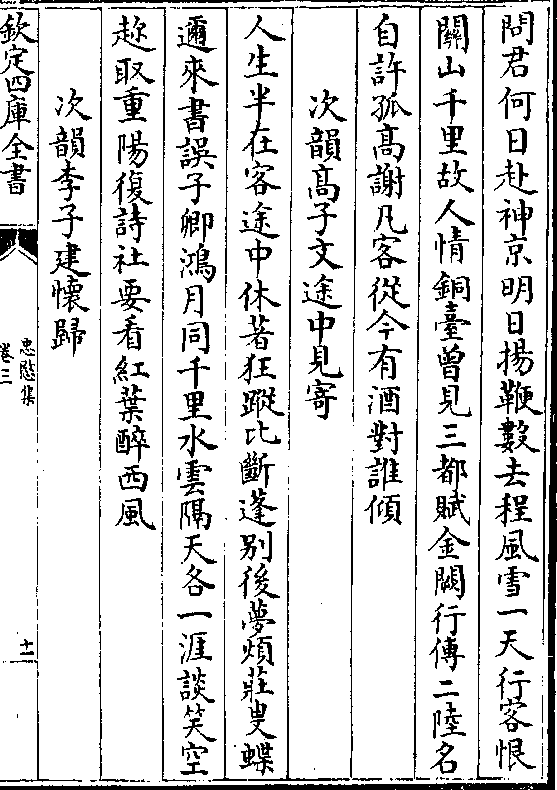 問君何日赴神京明日揚鞭數去程風雪一天行客恨
關山千里故人情銅臺曾見三都賦金闕行傳二陸名
自許孤高謝凡客從今有酒對誰傾
次韻高子文途中見寄
人生半在客途中休著狂蹤比斷蓬别後夢煩莊叟蝶
邇來書誤子卿鴻月同千里水雲隔天各一涯談笑空
趂取重陽復詩社要看紅葉醉西風
次韻李子建懷歸
欽定四庫全書
忠愍集
卷三
十一